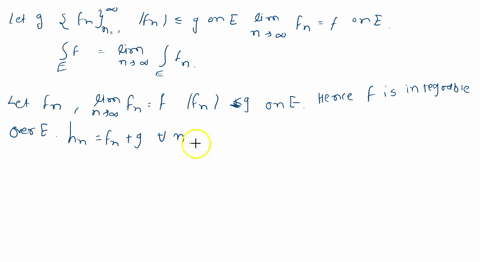 Let g {fn}∞n=1 |fn| ≤ g on E lim n→∞ fn = f on E.
∫E f = lim n→∞ ∫E fn.
Let fn, lim n→∞ fn = f |fn| ≤g on E. Hence f is integrable
over E. hn = fn + g ∀ n